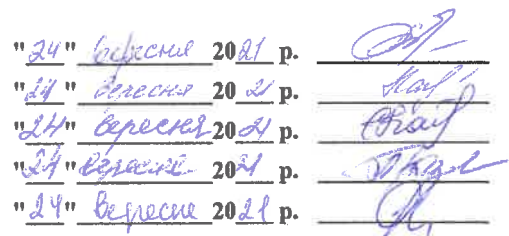 "24" вересня 2021 р.
"24" вересня 2021 р.
"24" вересня 2021 р.
"24" вересня 2021 р.
"24" вересня 2021 р.